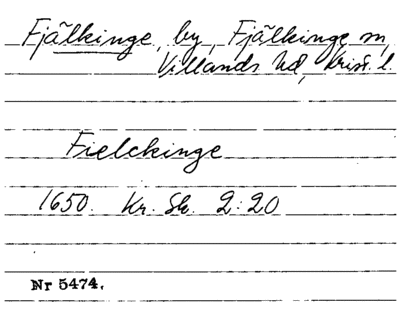 Fjälkinge, by, Fjälkinge sn,
Villands hd, Krist. l.
Fielckinge
1650. Kr. Sk. 2:20
Nr 5474.